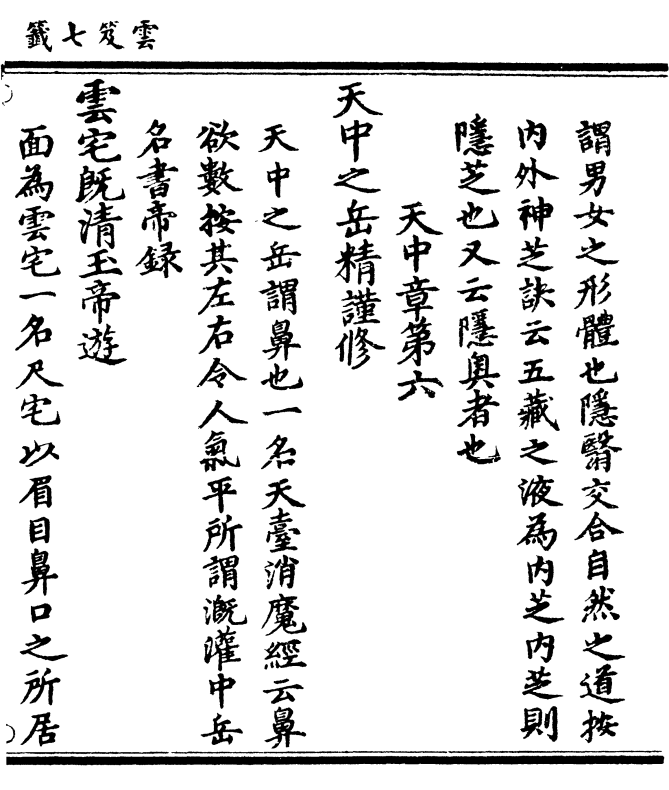 雲笈七籤
謂男女之形體也隱翳交合自然之道按
内外神芝訣云五藏之液為内芝内芝則
隱芝也又云隱奥者也
天中章第六
天中之岳精謹修
天中之岳謂鼻也一名天臺消魔經云鼻
欲數按其左右令人氣平所謂溉灌中岳
名書帝録
雲宅既清玉帝遊
面為雲宅一名尺宅以眉目鼻口之所居